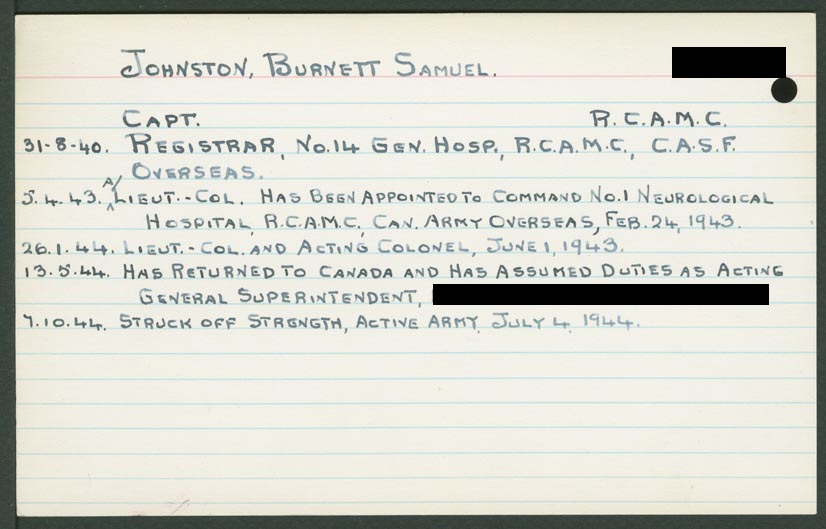 JOHNSTON, BURNETT SAMUEL.
CAPT. R.C.A.M.C.
31-8-40. REGISTRAR, NO.14 GEN. HOSP., R.C.A.M.C., C.A.S.F.
OVERSEAS.
5.4.43. A/LIEUT.-COL. HAS BEEN APPOINTED TO COMMAND NO.1 NEUROLOGICAL
HOSPITAL, R.C.A.M.C., CAN. ARMY OVERSEAS, FEB. 24, 1943.
26.1.44. LIEUT.-COL. AND ACTING COLONEL, JUNE 1, 1943.
13.5.44. HAS RETURNED TO CANADA AND HAS ASSUMED DUTIES AS ACTING
GENERAL SUPERINTENDENT,
7.10.44. STRUCK OFF STRENGTH, ACTIVE ARMY, JULY 4, 1944.